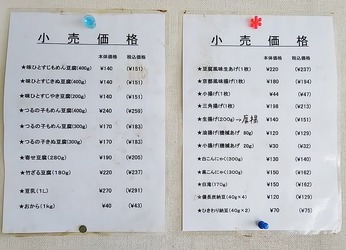 小売価格
本体価格 税込価格
★味ひとすじもめん豆腐(400g) ¥140 (¥151)
★味ひとすじきぬ豆腐(400g) ¥140 (¥151)
★味ひとすじやき豆腐(200g) ¥140 (¥151)
★つるの子もめん豆腐(400g) ¥240 (¥259)
★つるの子もめん豆腐(300g) ¥170 (¥183)
★つるの子きぬ豆腐(300g) ¥170 (¥183)
★寄せ豆腐(280g) ¥190 (¥205)
★竹ざる豆腐(180g) ¥220 (¥237)
★豆乳(1L) ¥270 (¥291)
★おから(1kg) ¥40 (¥43)
小売価格
本体価格 税込価格
★豆腐屋生あげ(1枚) ¥220 (¥237)
★京都風味揚げ(1枚) ¥180 (¥194)
★小揚げ(1枚) ¥44 (¥47)
★三角揚げ(1枚) ¥198 (¥213)
★生揚げ(200g)→厚揚 ¥140 (¥151)
★油揚げ(機械あげ 80g) ¥120 (¥129)
★小揚げ(機械あげ 20g) ¥30 (¥32)
★白こんにゃく(300g) ¥130 (¥140)
★黒こんにゃく(300g) ¥150 (¥162)
★白滝(170g) ¥150 (¥162)
★備長炭納豆(40g×2) ¥120 (¥129)
★ひきわり納豆(40g×2) ¥70 (¥75)